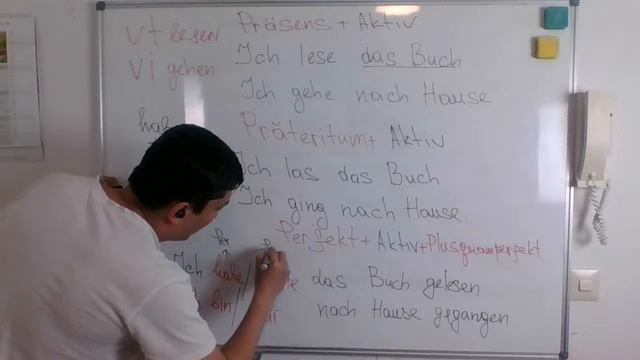 vt lesen Präsens + Aktiv
vi gehen Ich lese das Buch
Ich gehe nach Hause
Präteritum + Aktiv
Ich las das Buch
Ich ging nach Hause
Perfekt + Aktiv + Plusquamperfekt
Per
Ich habe / das Buch gelesen
bin / nach Hause gegangen